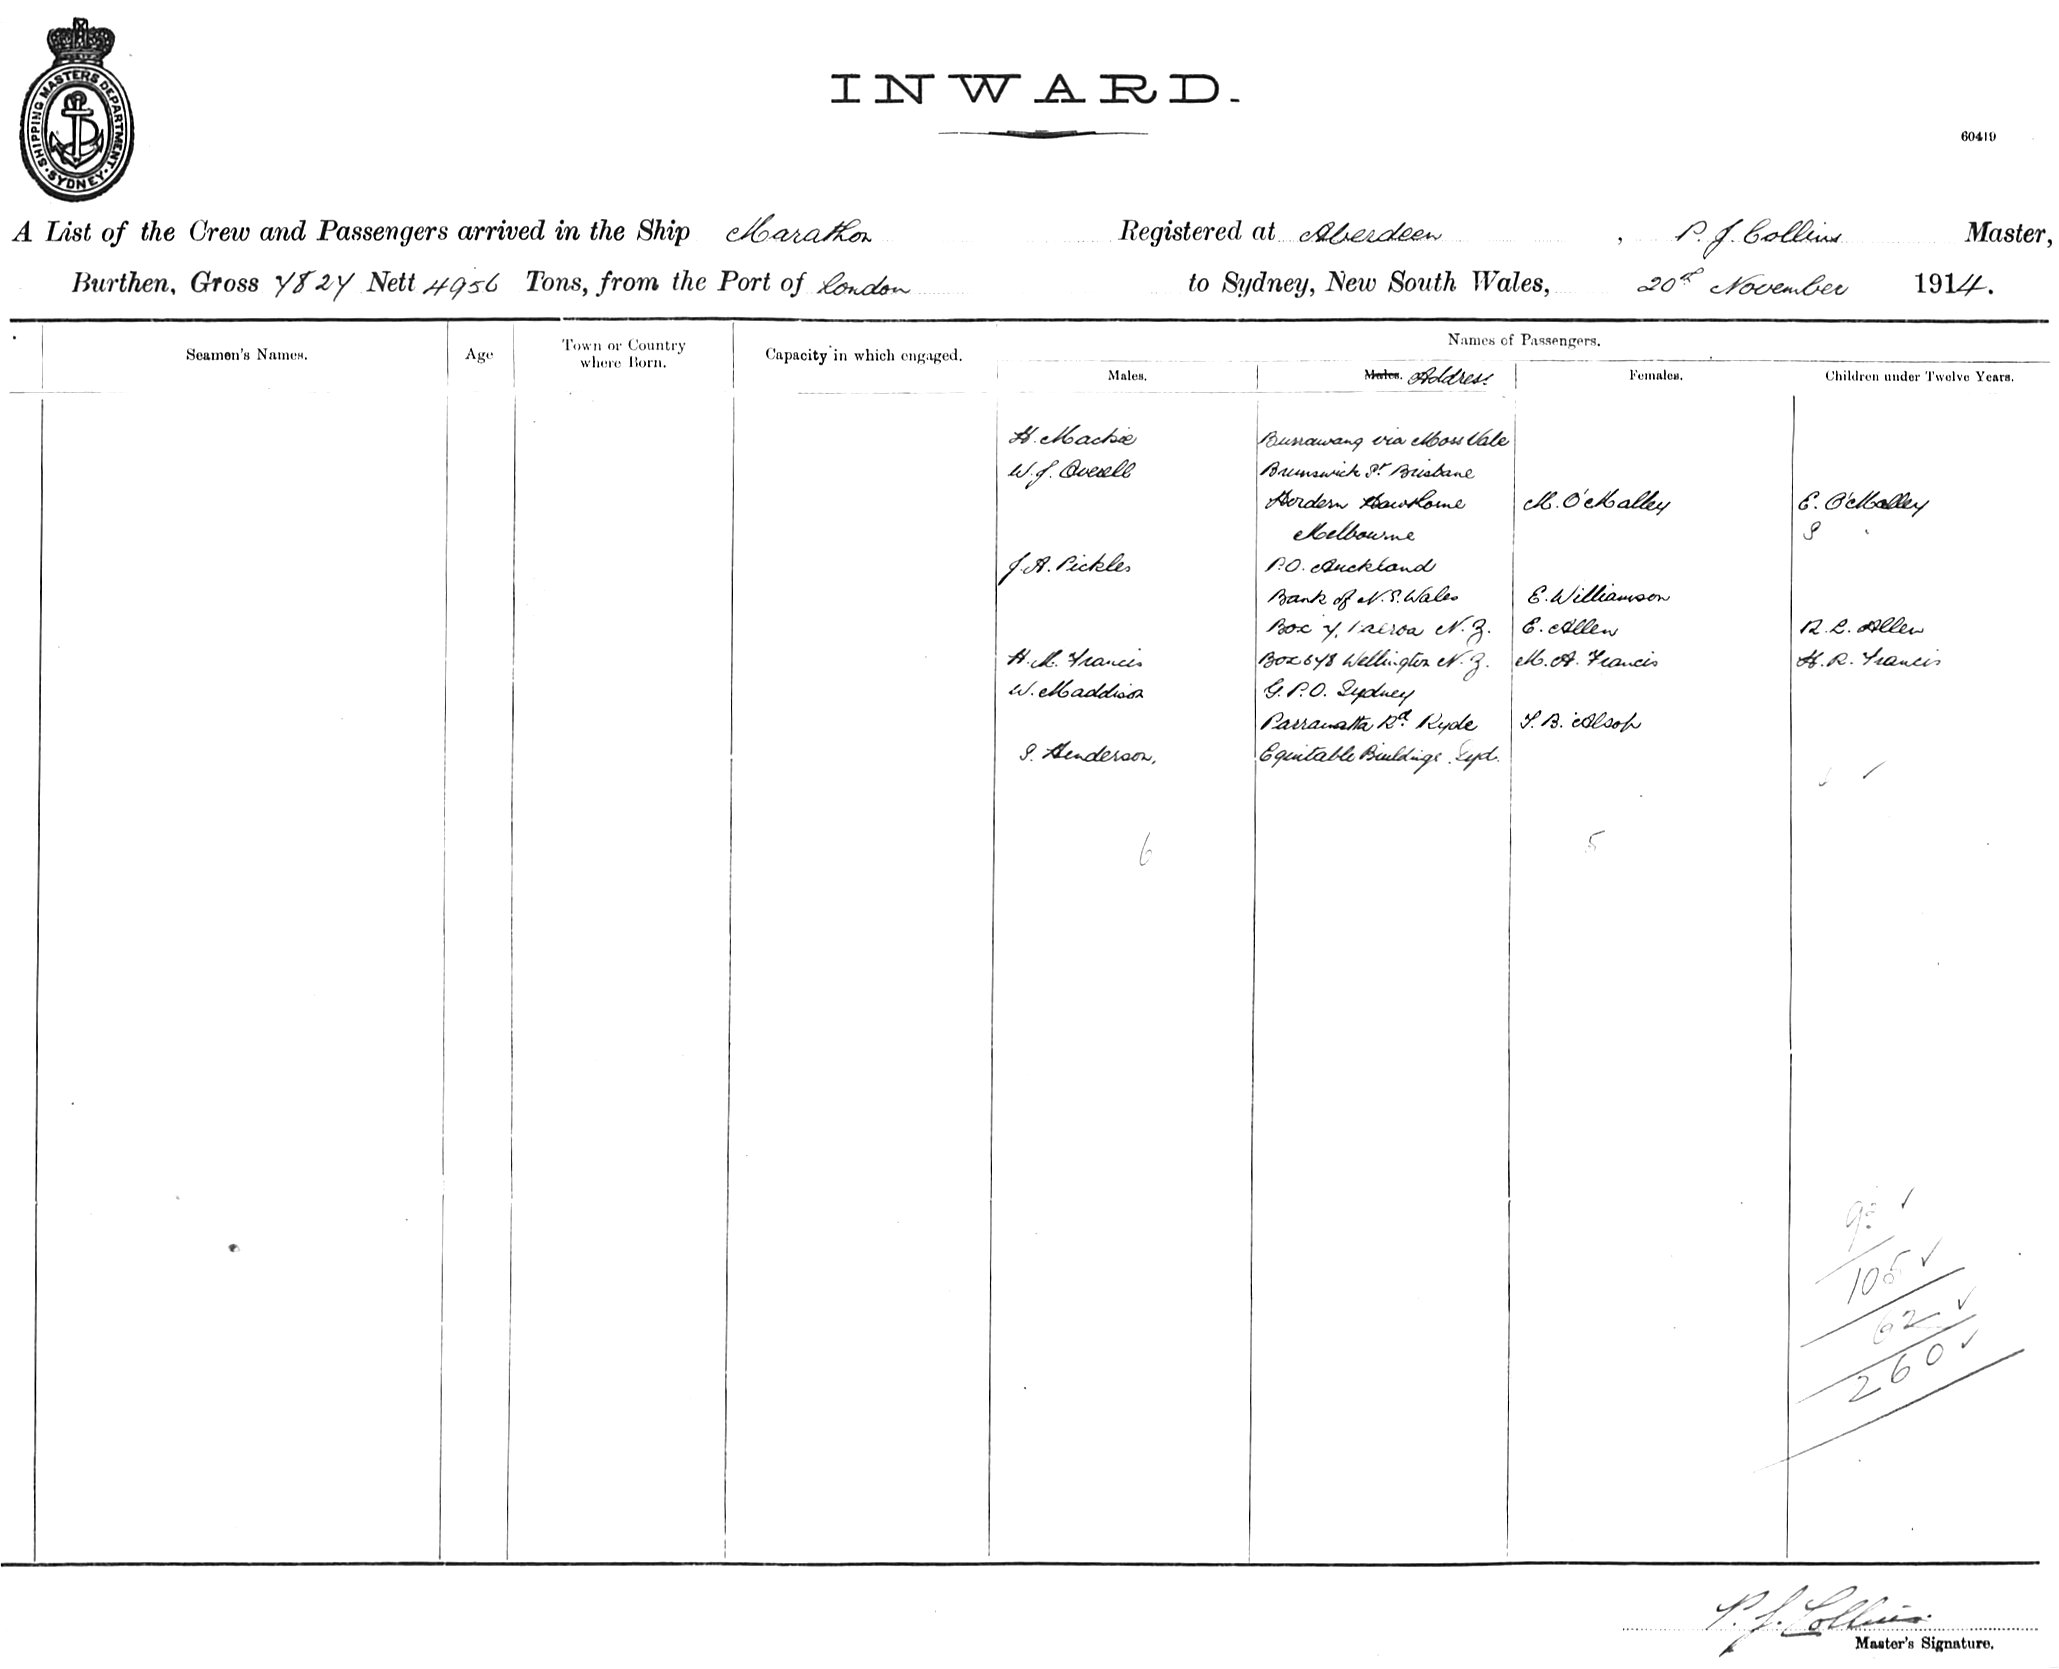 SHIPPING MASTERS DEPARTMENT
SYDNEY
INWARD.
60419
A List of the Crew and Passengers arrived in the Ship Marathon Registered at Aberdeen, P. J. Collins Master,
Burthen, Gross 7827 Nett 4956 Tons, from the Port of London to Sydney, New South Wales, 20th November 1914.
Seamen's Names. Age Town or Country where Born. Capacity in which engaged. Names of Passengers.
Males. Males. Address Females. Children under Twelve Years.
H. Mackie Burrawang via Moss Vale
W. J. Overell Brunswick St Brisbane
Hordern Hawthorne M. O'Malley E. O'Malley
Melbourne S
J. A. Pickles P.O. Auckland
Bank of N. S. Wales E. Williamson
Box 7, Paeroa N. Z. E. Allen R. L. Allen
H. M. Francis Box 678 Wellington N. Z. M. A. Francis H. R. Francis
W. Maddison G. P. O. Sydney
Parramatta Rd. Ryde T. B. Alsop
S. Henderson, Equitable Buildings Syd.
6 5
105
62
260
P. J. Collins
Master's Signature.